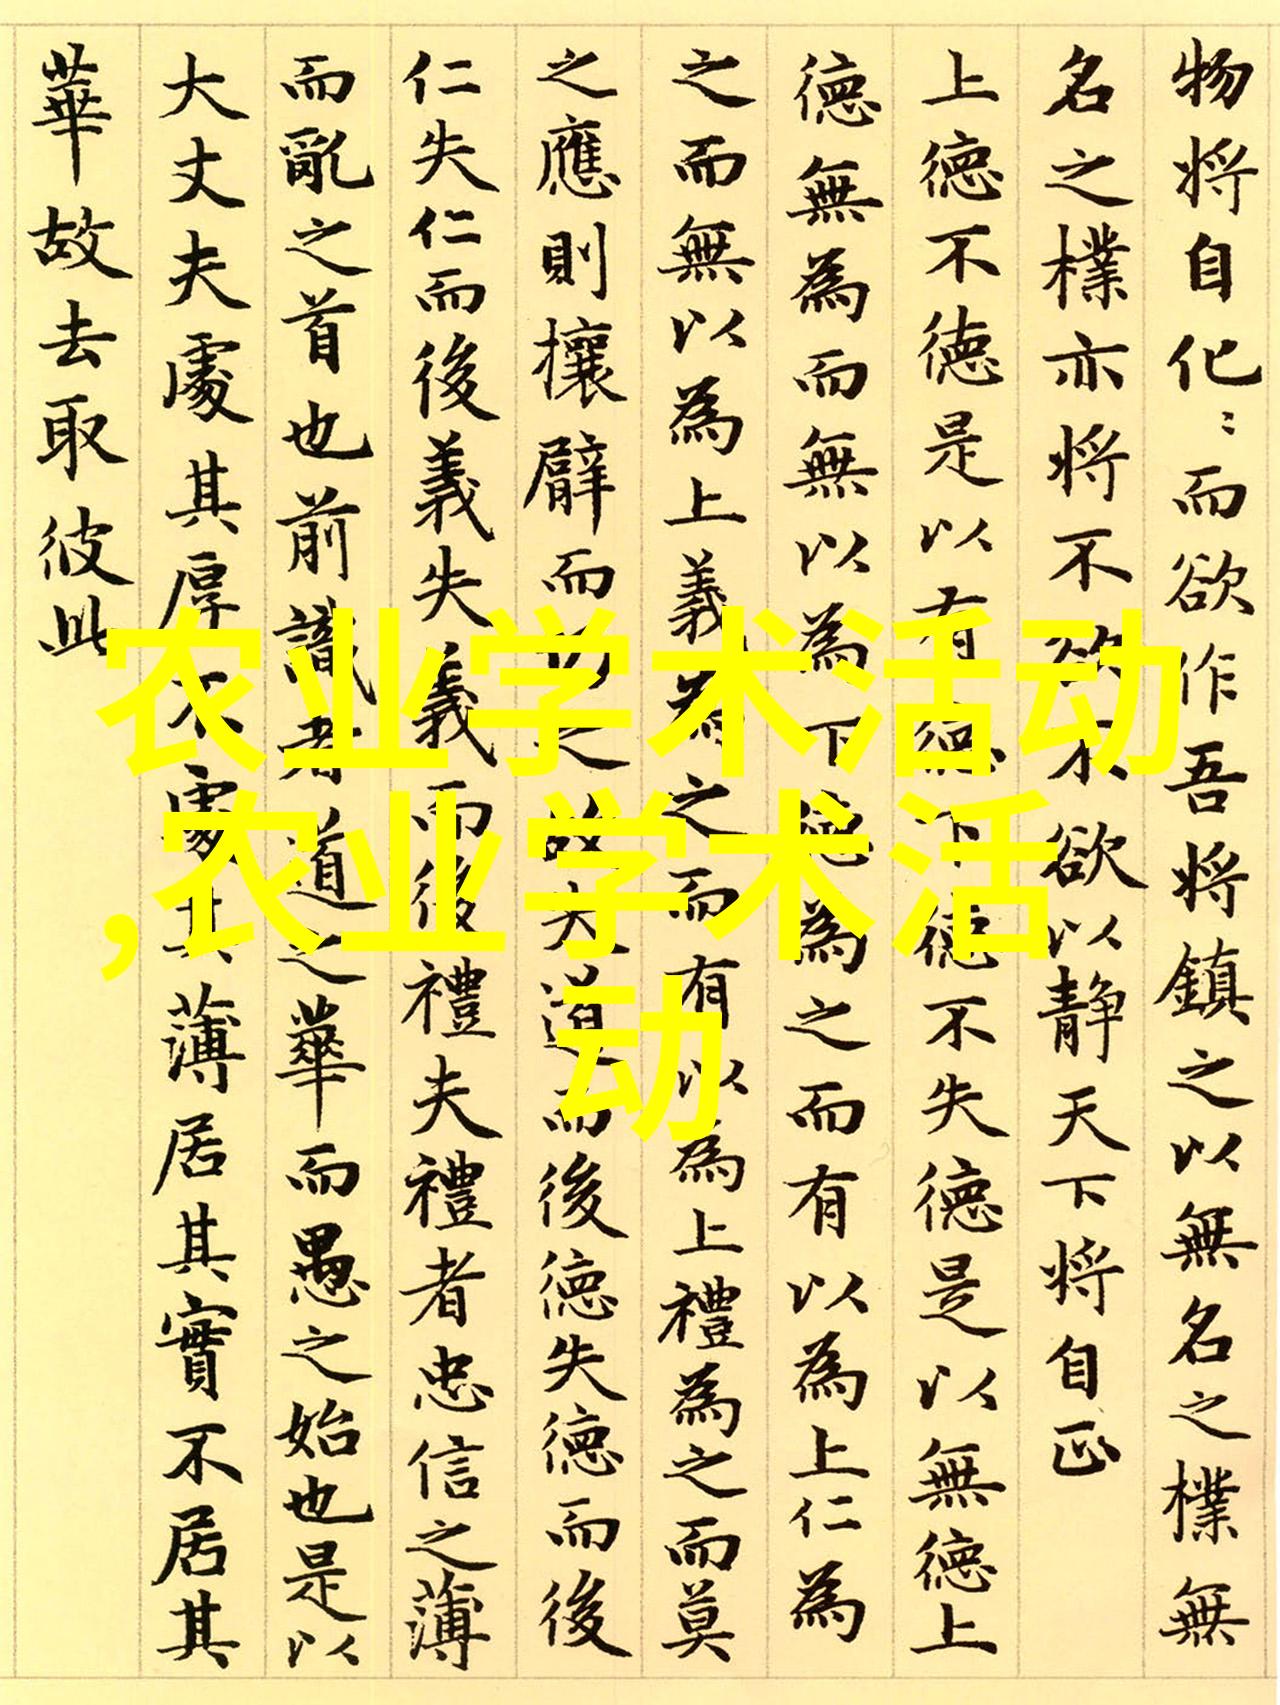 物将自化〻而欲作吾将鎮之以無名之樸無
名之樸亦将不欲不欲以静天下将自正
上德不德是以有德下德不失德是以無德上
德無為而無以為下德為之而有以為上仁為
之而無以為上義為之而有以為上禮為之而莫
之應則攘臂而扔之故失道而後德失德而後
仁失仁而後義失義而後禮夫禮者忠信之薄
而亂之首也前識者道之華而愚之始也是以
大丈夫處其厚不處其薄居其實不居其
華故去取彼此
农业学术活动
,农业学术活
动